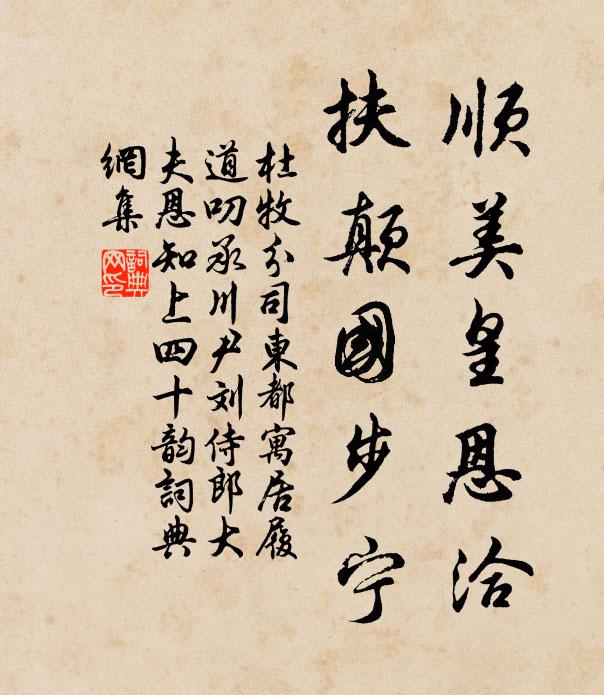 順美皇恩洽
扶顛國步宁
杜牧分司東都寓居履
道叨承川尹刘侍郎大
夫恩知上四十韵詞典
網集
詞典
网印